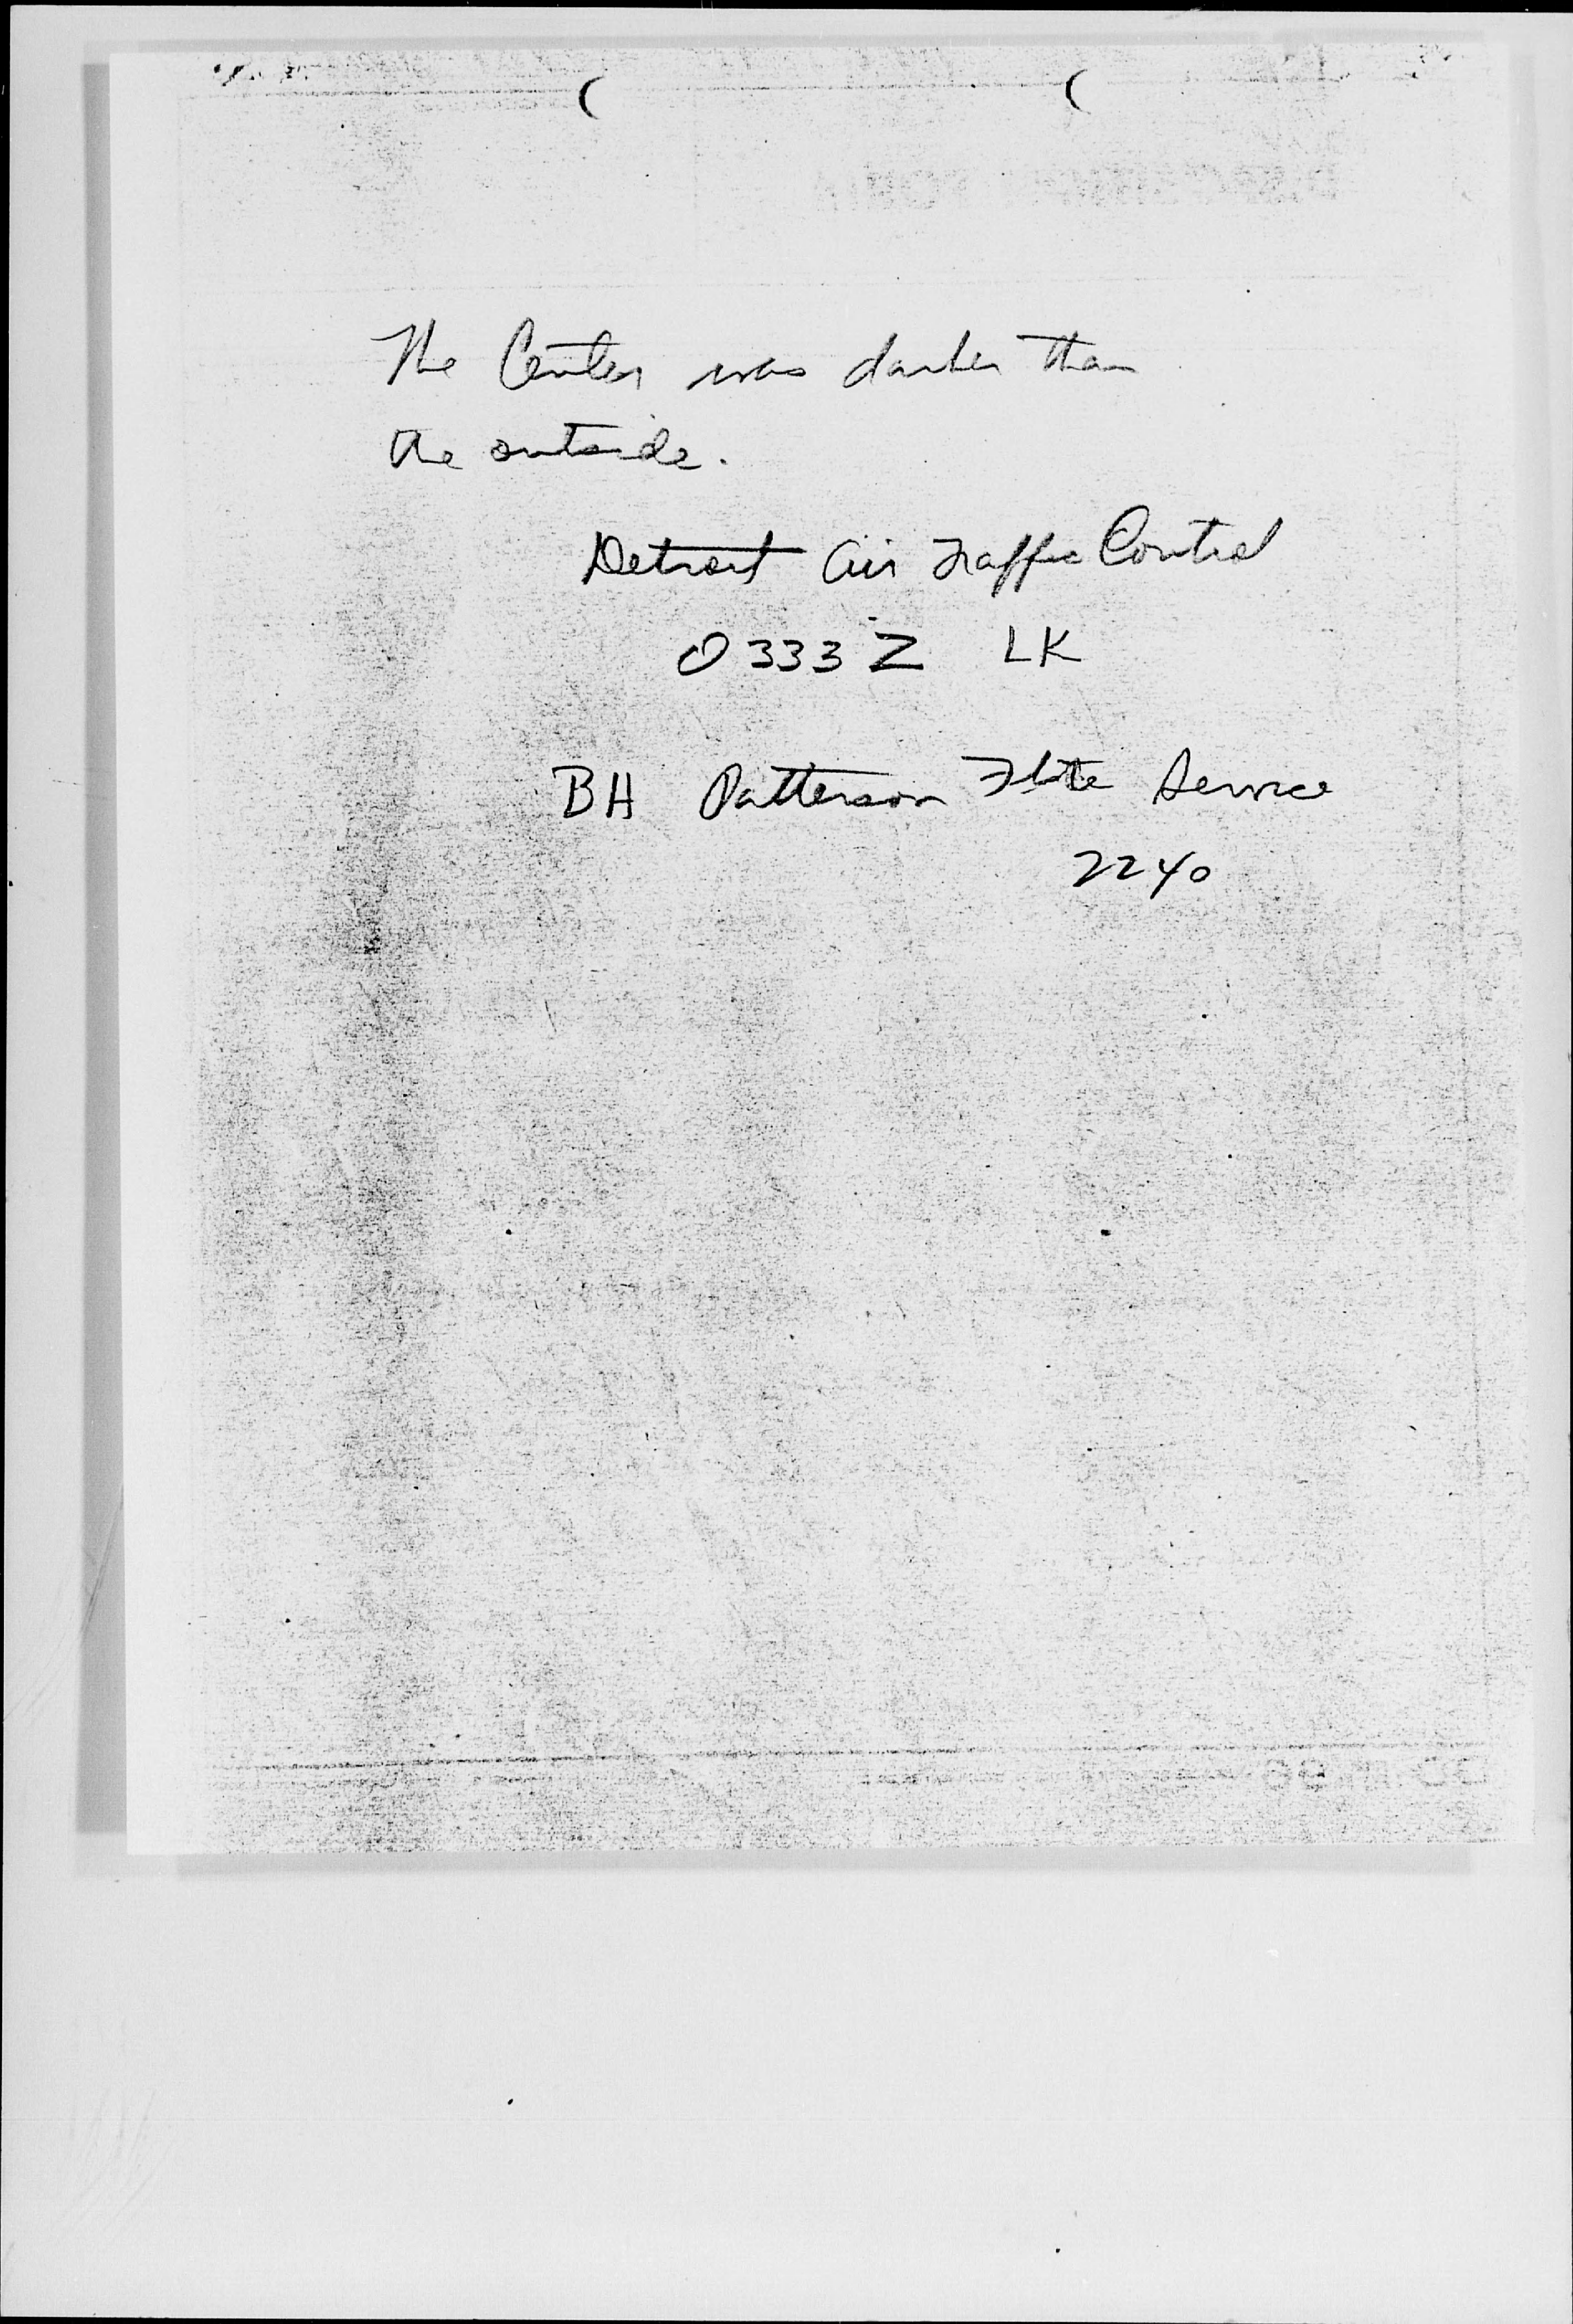 The Center was darker than
the outside.
Detroit Air Traffic Control
0333 Z LK
BH Patterson Flite Service
2240